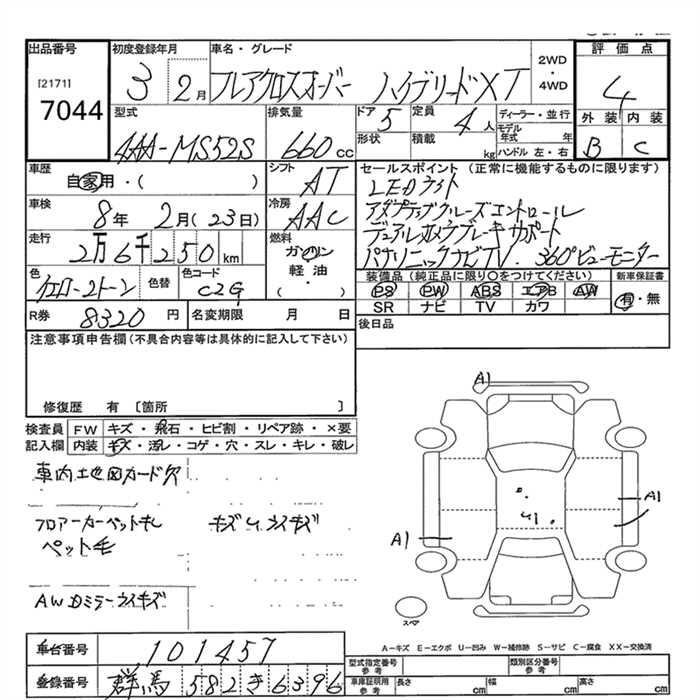 出品番号 初度登録年月 車名・グレード 2WD・4WD 評価点
[2171]
7044 3 2月 フレアクロスオーバー ハイブリードXT 4
型式 排気量 ドア 5 定員 4人 ディーラー・並行 外装 内装
4AA-MS52S 660cc 形状 積載 kg モデル年式 年 ハンドル 左・右 B C
車歴 自家用・( ) シフト AT セールスポイント (正常に機能するものに限ります)
LEDライト
車検 8年 2月(23日) 冷房 AAC アダプティブクルーズコントロール
デュアルカメラブレーキサポート
走行 2万6千250km 燃料 ガソリン 軽油 ( ) パナソニックナビTV. 360°ビューモニター
色 イエロー2トーン 色替 色コード C2G 装備品(純正品に限り○をつけてください) 新車保証書
PS PW ABS エアB AW 有・無
SR ナビ TV カワ
R券 8320円 名変期限 月 日 後日品
注意事項申告欄(不具合内容等は具体的に記入して下さい)
修復歴 有 〔箇所 〕
検査員 FW キズ・飛石・ヒビ割・リペア跡・×要
記入欄 内装 キズ・汚レ・コゲ・穴・スレ・キレ・破レ
A1
車内地図カード欠
A1
フロアーカーペット毛 キズ
ペット毛
A1
AW ミラー キズ
スペア
A-キズ E-エクボ U-凹み W-補修跡 S-サビ C-腐食 XX-交換済
車台番号 101457
型式指定番号 参考 類別区分番号 参考
登録番号 群馬 582 き 6396
車庫証明用 参考 長さ cm 幅 cm 高さ cm